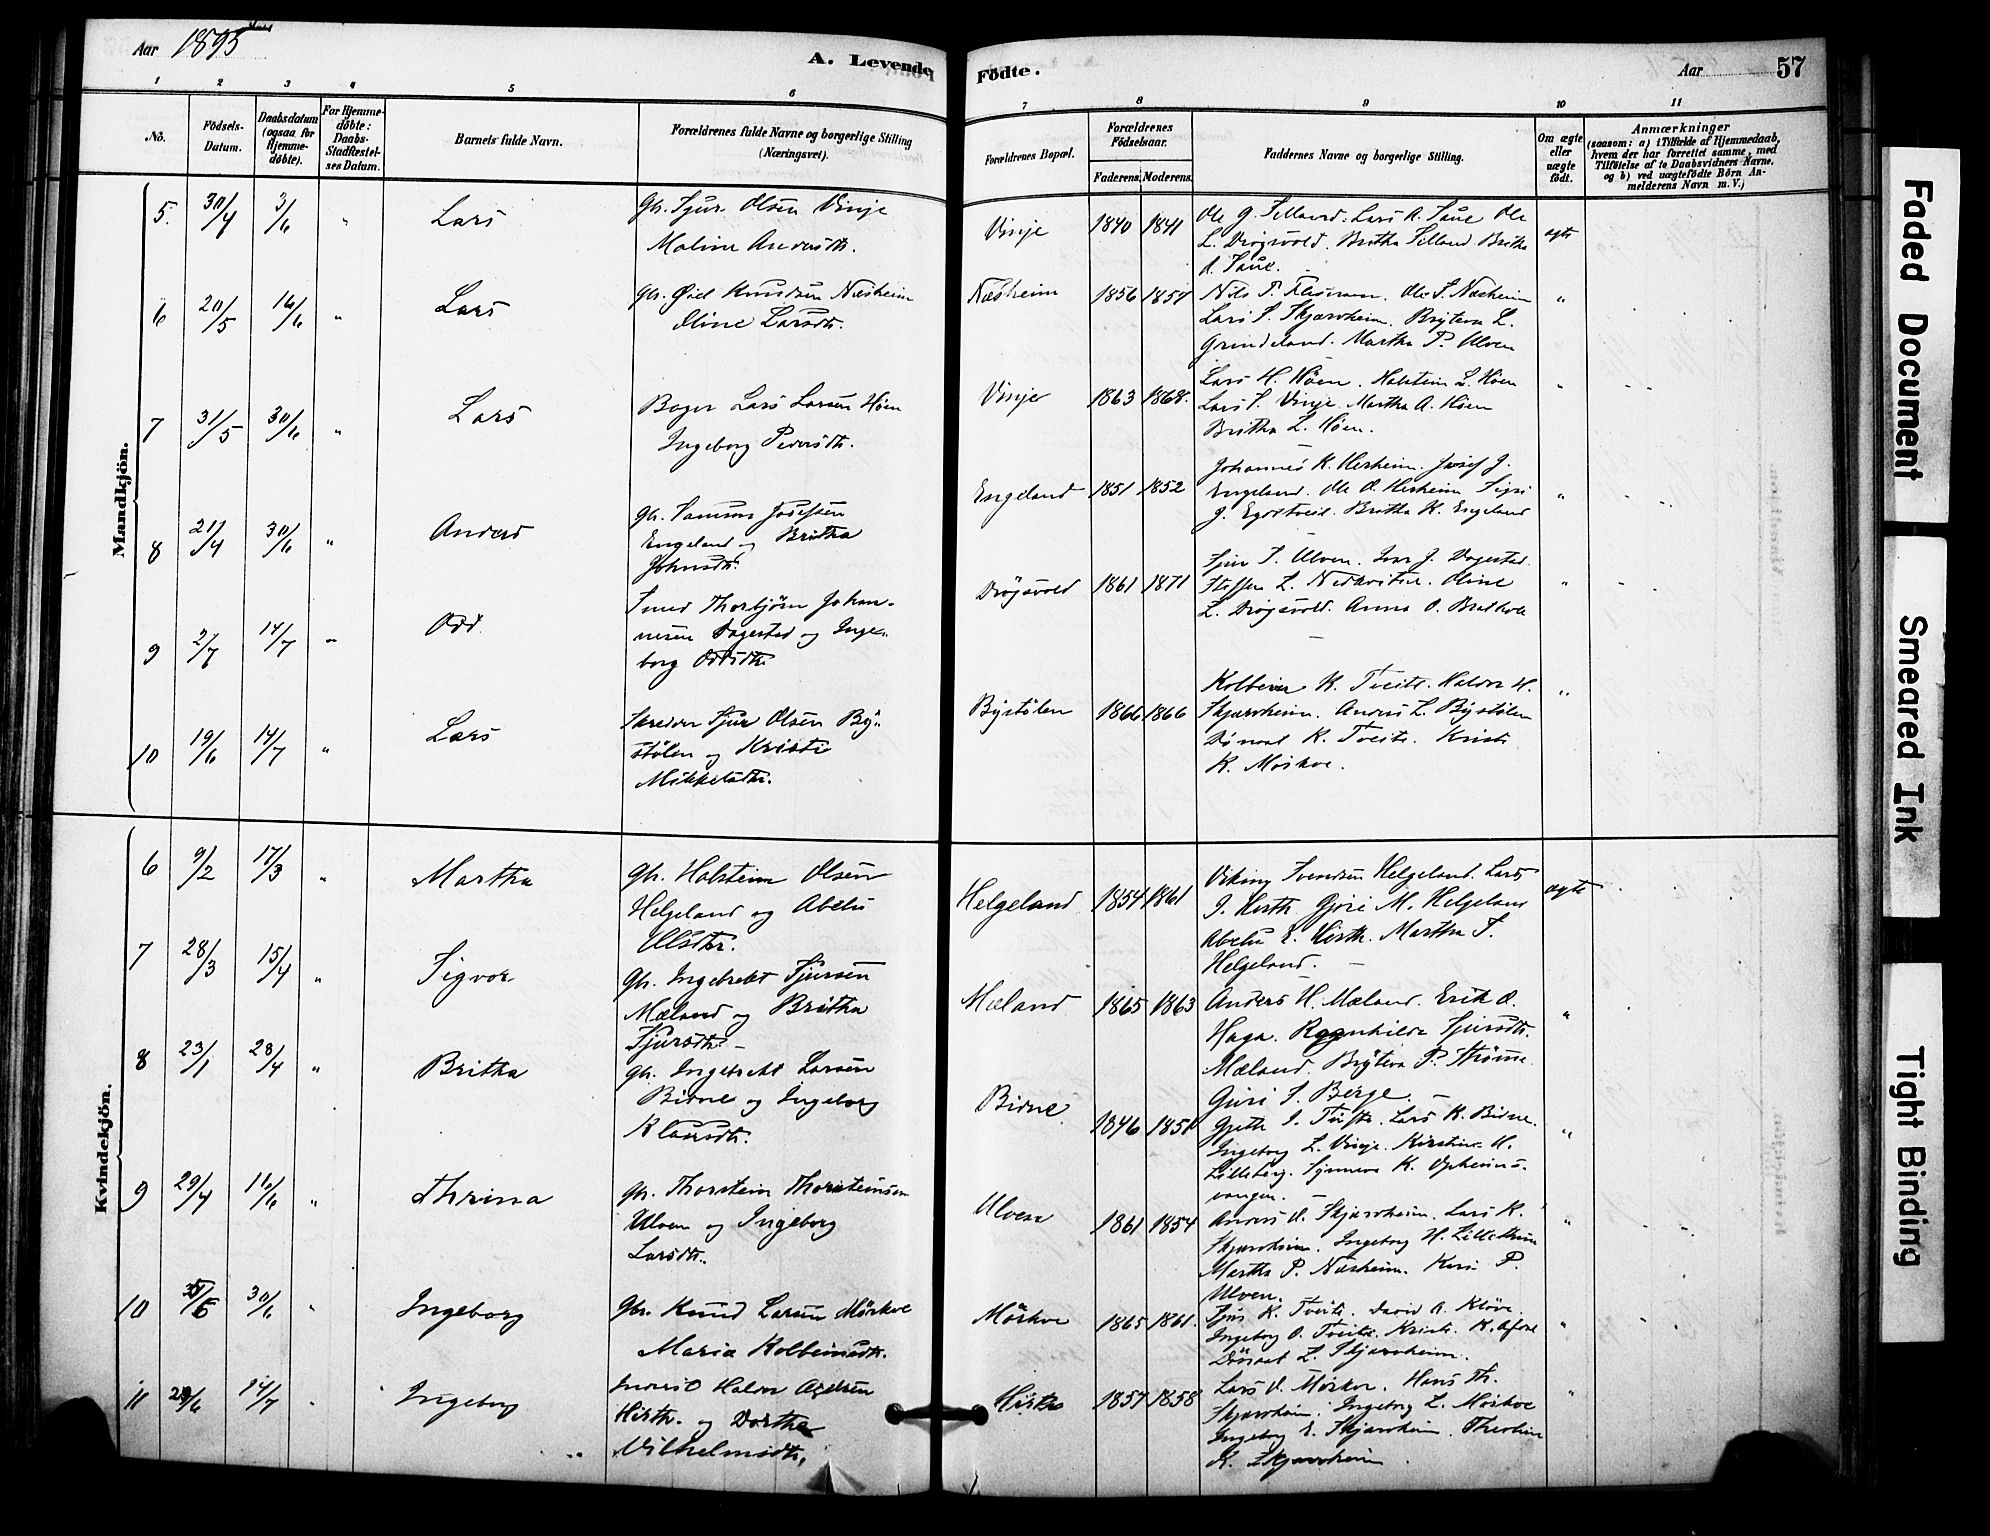 Aar 1895
A. Levende Födte.
Aar
57
1 2 3 4 5 6 7 8 9 10 11
No.
Födsels-Datum.
Daabsdatum (ogsaa for Hjemme-døbte).
For Hjemme-døbte: Daabs-Stadfæstelses Datum.
Barnets fulde Navn.
Forældrenes fulde Navne og borgerlige Stilling (Næringsvei).
Forældrenes Bopæl.
Forældrenes Födselsaar.
Faderens. Moderens.
Faddernes Navne og borgerlige Stilling.
Om ægte eller uægte født.
Anmærkninger
(saasom: a) i Tilfælde af Hjemmedaab,
hvem der har forrettet samme, med
Tilföielse af to Daabsvidners Navne,
og b) ved uægtefødte Börn An-
melderens Navn m. V.)
Mandkjön.
5. 30/4 3/6 " Lars
Gbr. Sjur Olsen Vinje
Malina Andersdtr.
Vinje 1840 1841
Ole G. Selland. Lars A. Saue Ole
L. Drøgsvold. Britha Selland Britha
A. Saue.
ægte
6 20/5 16/6 " Lars
Gbr. Knudsen Næsheim
Oline Larsdtr.
Næsheim 1856 1854
Ole S. Næsheim
Lars S. Skjerveheim. Bryteva L.
Grindeland. Martha P. Ulven
"
7 31/5 30/6 " Lars
Bager Lars Larsen Höen
Ingeborg Pedersdtr.
Vinje 1863 1868.
Lars H. Höen. Halstein L. Höen
Lars S. Vinje. Martha A. Höen
Britha L. Höen.
"
8 21/4 30/6 " Anders
Gbr. Samson Josefsen
Engeland og Britha
Johnsdtr.
Engeland 1851 1852
Johannes K. Herheim. Josef J.
Engeland. Ole O. Herheim Sigri
J. Britha K. Engeland
"
9 2/7 14/7 " Odd
Smed Thorbjörn Johan-
nesen Dagestad og Inge-
borg Oddsdtr.
Drøgsvold 1861 1871
Sjur S. Ulven. Ivar J. Dagestad.
Steffen L. Nedkvitne. Oline
L. Drøgsvold. Anna O.
"
10 19/6 14/7 " Lars
Skredder Sjur Olsen By-
stølen og Kristi
Mikkelsdtr.
Bystølen 1866 1866
Kolbein K. Tveite. Haldor H.
Skjerveheim. Anders L. Bystølen
K. Tveite. Kristi
K. Mørkve.
"
Kvindekjön.
6 9/2 17/3 " Martha
Gbr. Halstein Olsen
Helgeland og Abelu
Ulsdtr.
Helgeland 1854 1861
Viking Svendsen Helgeland. Lars
J. Hirth. Gjöri M. Helgeland
Abelu E. Hirth. Martha S.
Helgeland.
ægte
7 28/3 15/4 " Sigvor
Gbr. Ingebrekt Sjursen
Mæland og Britha
Sjursdtr.
Mæland 1865 1863
Anders H. Mæland. Erik O.
Haga. Ragnhilda Sjursdtr.
Mæland. Bryteva P. Strømme.
Guri S. Berge.
"
8 23/1 28/4 " Britha
Gbr. Ingebrekt Larsen
Bidne og Ingeborg
Klausdtr.
Bidne 1846 1851
Lars K. Bidne.
Ingeborg L. Vinje. Kirstine H.
Lilleberg. Synneva K. Opheims-
vangen.
"
9 29/4 16/6 " Thrina
Gbr. Thorstein Thorsteinsen
Ulven og Ingeborg
Larsdtr.
Ulven 1861 1854
Anders O. Skjerveheim. Lars K.
Skjerveheim. Ingeborg H. Lilletheim
Martha P. Næsheim. Kari P.
Ulven.
"
10 30/6 " Ingeborg
Gbr. Knud Larsen Mörkve
Maria Kolbeinsdtr.
Mörkve 1865 1861.
Sjur K. Tveite. David A. Kløve.
Ingeborg O. Tveite. Kristi K.
L. Skjerveheim.
"
11 14/7 " Ingeborg
Inderst Haldor
Hirth. og Dorthea
Vilhelmsdtr.
Hirth 1857 1858
Lars O. Mörkve. Hans Th.
Skjerveheim. Ingeborg L. Mörkve
Ingeborg E. Skjerveheim.
K. Skjerveheim
"
Faded Document
Smeared Ink
Tight Binding